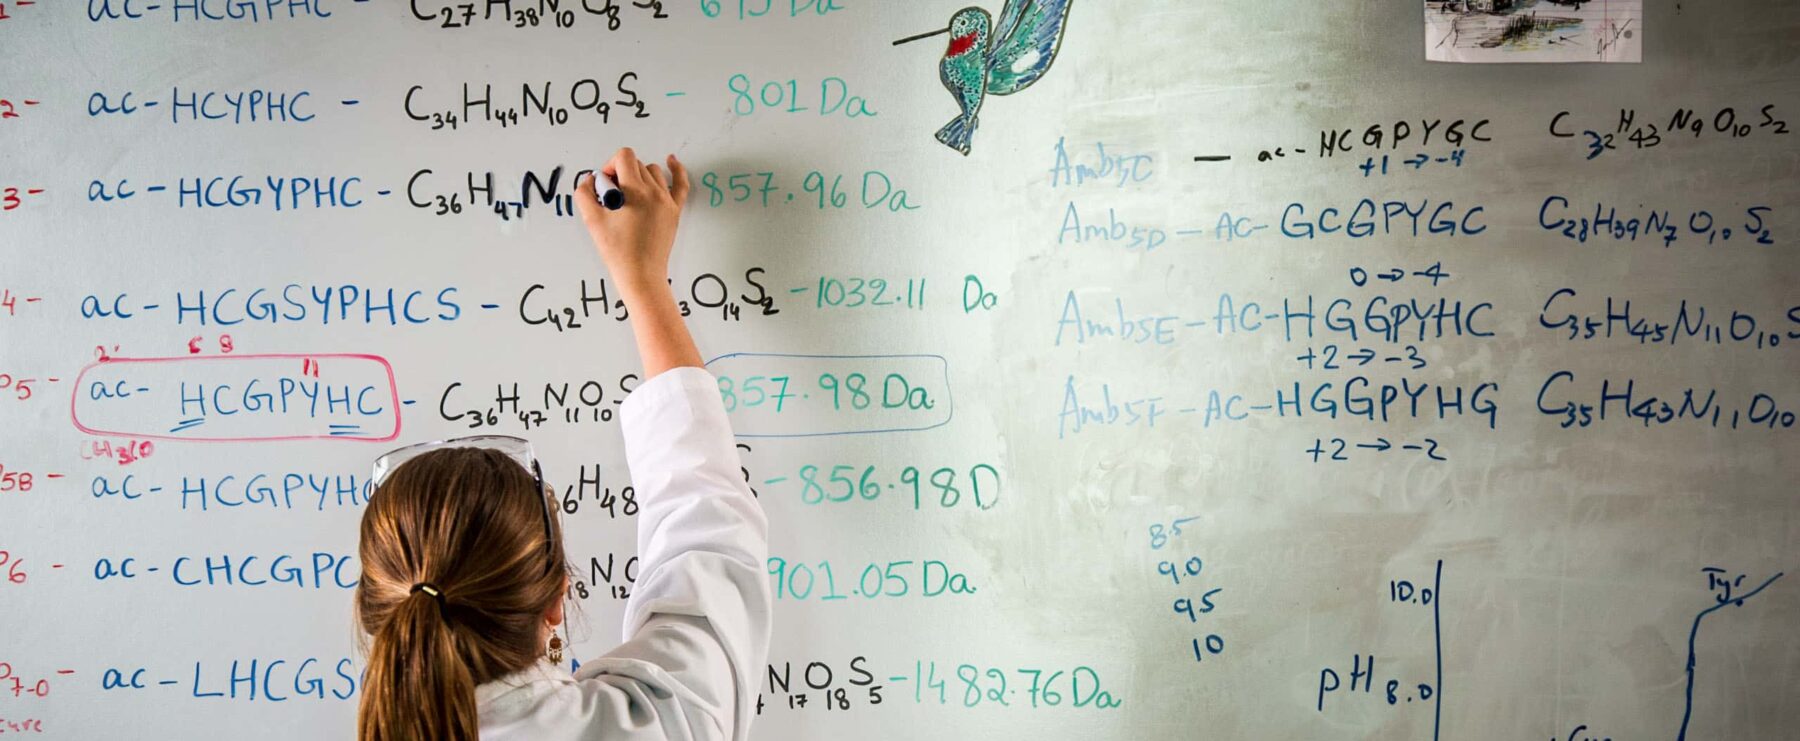 1- ac-HCGPHC - C27H38N10O8S2 615 Da
2- ac-HCYPHC - C34H44N10O9S2 - 801 Da
3- ac-HCGYPHC - C36H47N11O 857.96 Da
4- ac-HCGSYPHCS - C42H 3O14S2 - 1032.11 Da
2' 6 8 11
P5 - ac-HCGPYHC - C36H47N11O10S 857.98 Da
CH3CO
P5B - ac-HCGPYHC 6H48 - 856.98 D
P6 - ac-CHCGPC 18N12 901.05 Da
P7-0 - ac-LHCGS N17O18S5 - 1482.76 Da
Amb5C - ac-HCGPYGC C32H43N9O10S2
+1 → -4
Amb5D - AC-GCGPYGC C28H39N7O10S2
0 → -4
Amb5E - AC-HGGPYHC C35H45N11O10S
+2 → -3
Amb5F - AC-HGGPYHG C35H43N11O10
+2 → -2
8.5
9.0
9.5
10
10.0
pH 8.0
Tyr